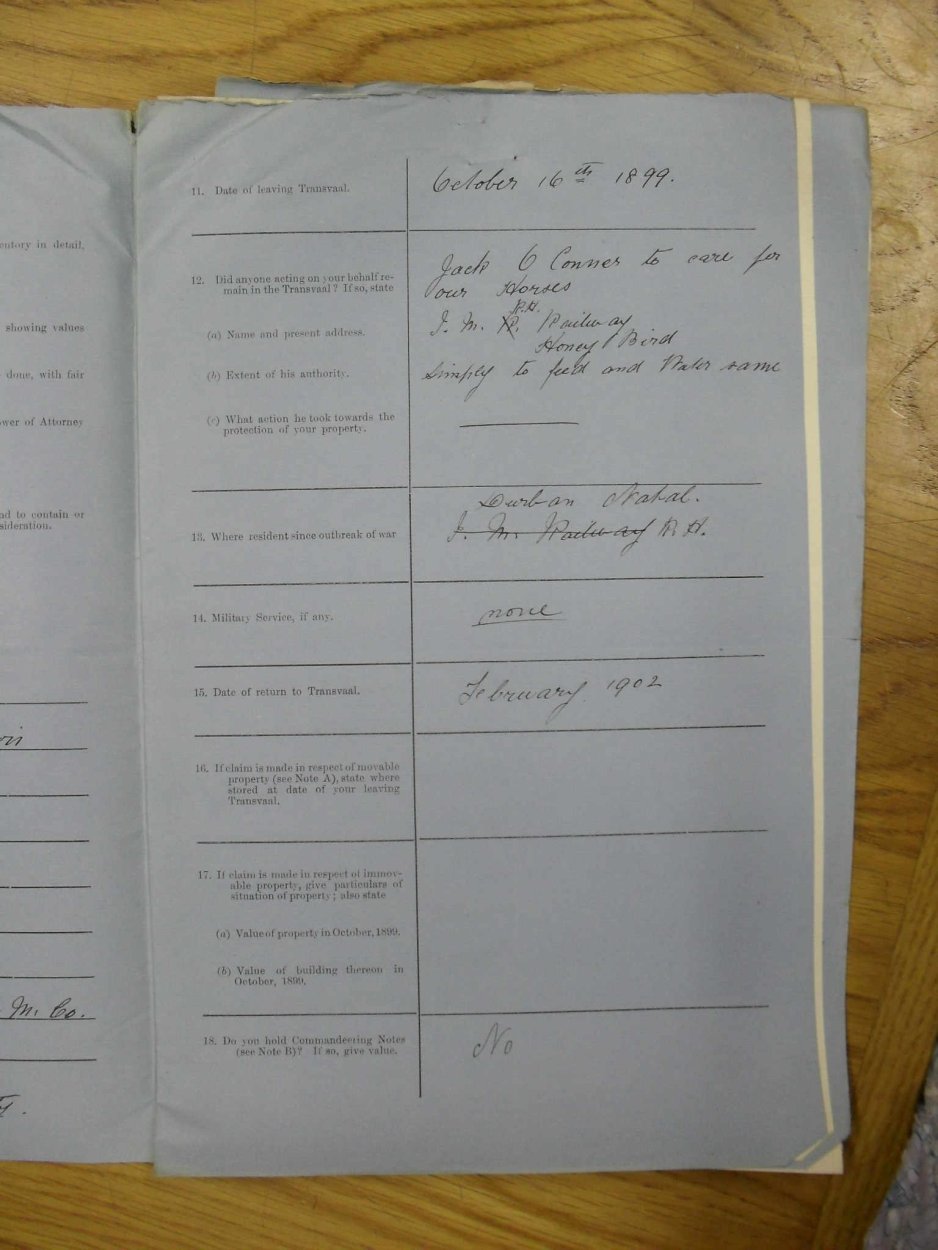 entory in detail,
showing values
done, with fair
wer of Attorney
nd to contain or
sideration.
M. Co.
11. Date of leaving Transvaal.
October 16th 1899.
12. Did anyone acting on your behalf re-
main in the Transvaal? If so, state
Jack O Conner to care for
our Horses
(a) Name and present address.
R.H.
J. M. R. Railway
Honey Bird
(b) Extent of his authority.
Simply to feed and Water same
(c) What action he took towards the
protection of your property.
13. Where resident since outbreak of war
Durban Natal.
J. M. Railway R. H.
14. Military Service, if any.
none
15. Date of return to Transvaal.
February 1902
16. If claim is made in respect of movable
property (see Note A), state where
stored at date of your leaving
Transvaal.
17. If claim is made in respect of immov-
able property, give particulars of
situation of property; also state
(a) Value of property in October, 1899.
(b) Value of building thereon in
October, 1899.
18. Do you hold Commandeering Notes
(see Note B)? If so, give value.
No